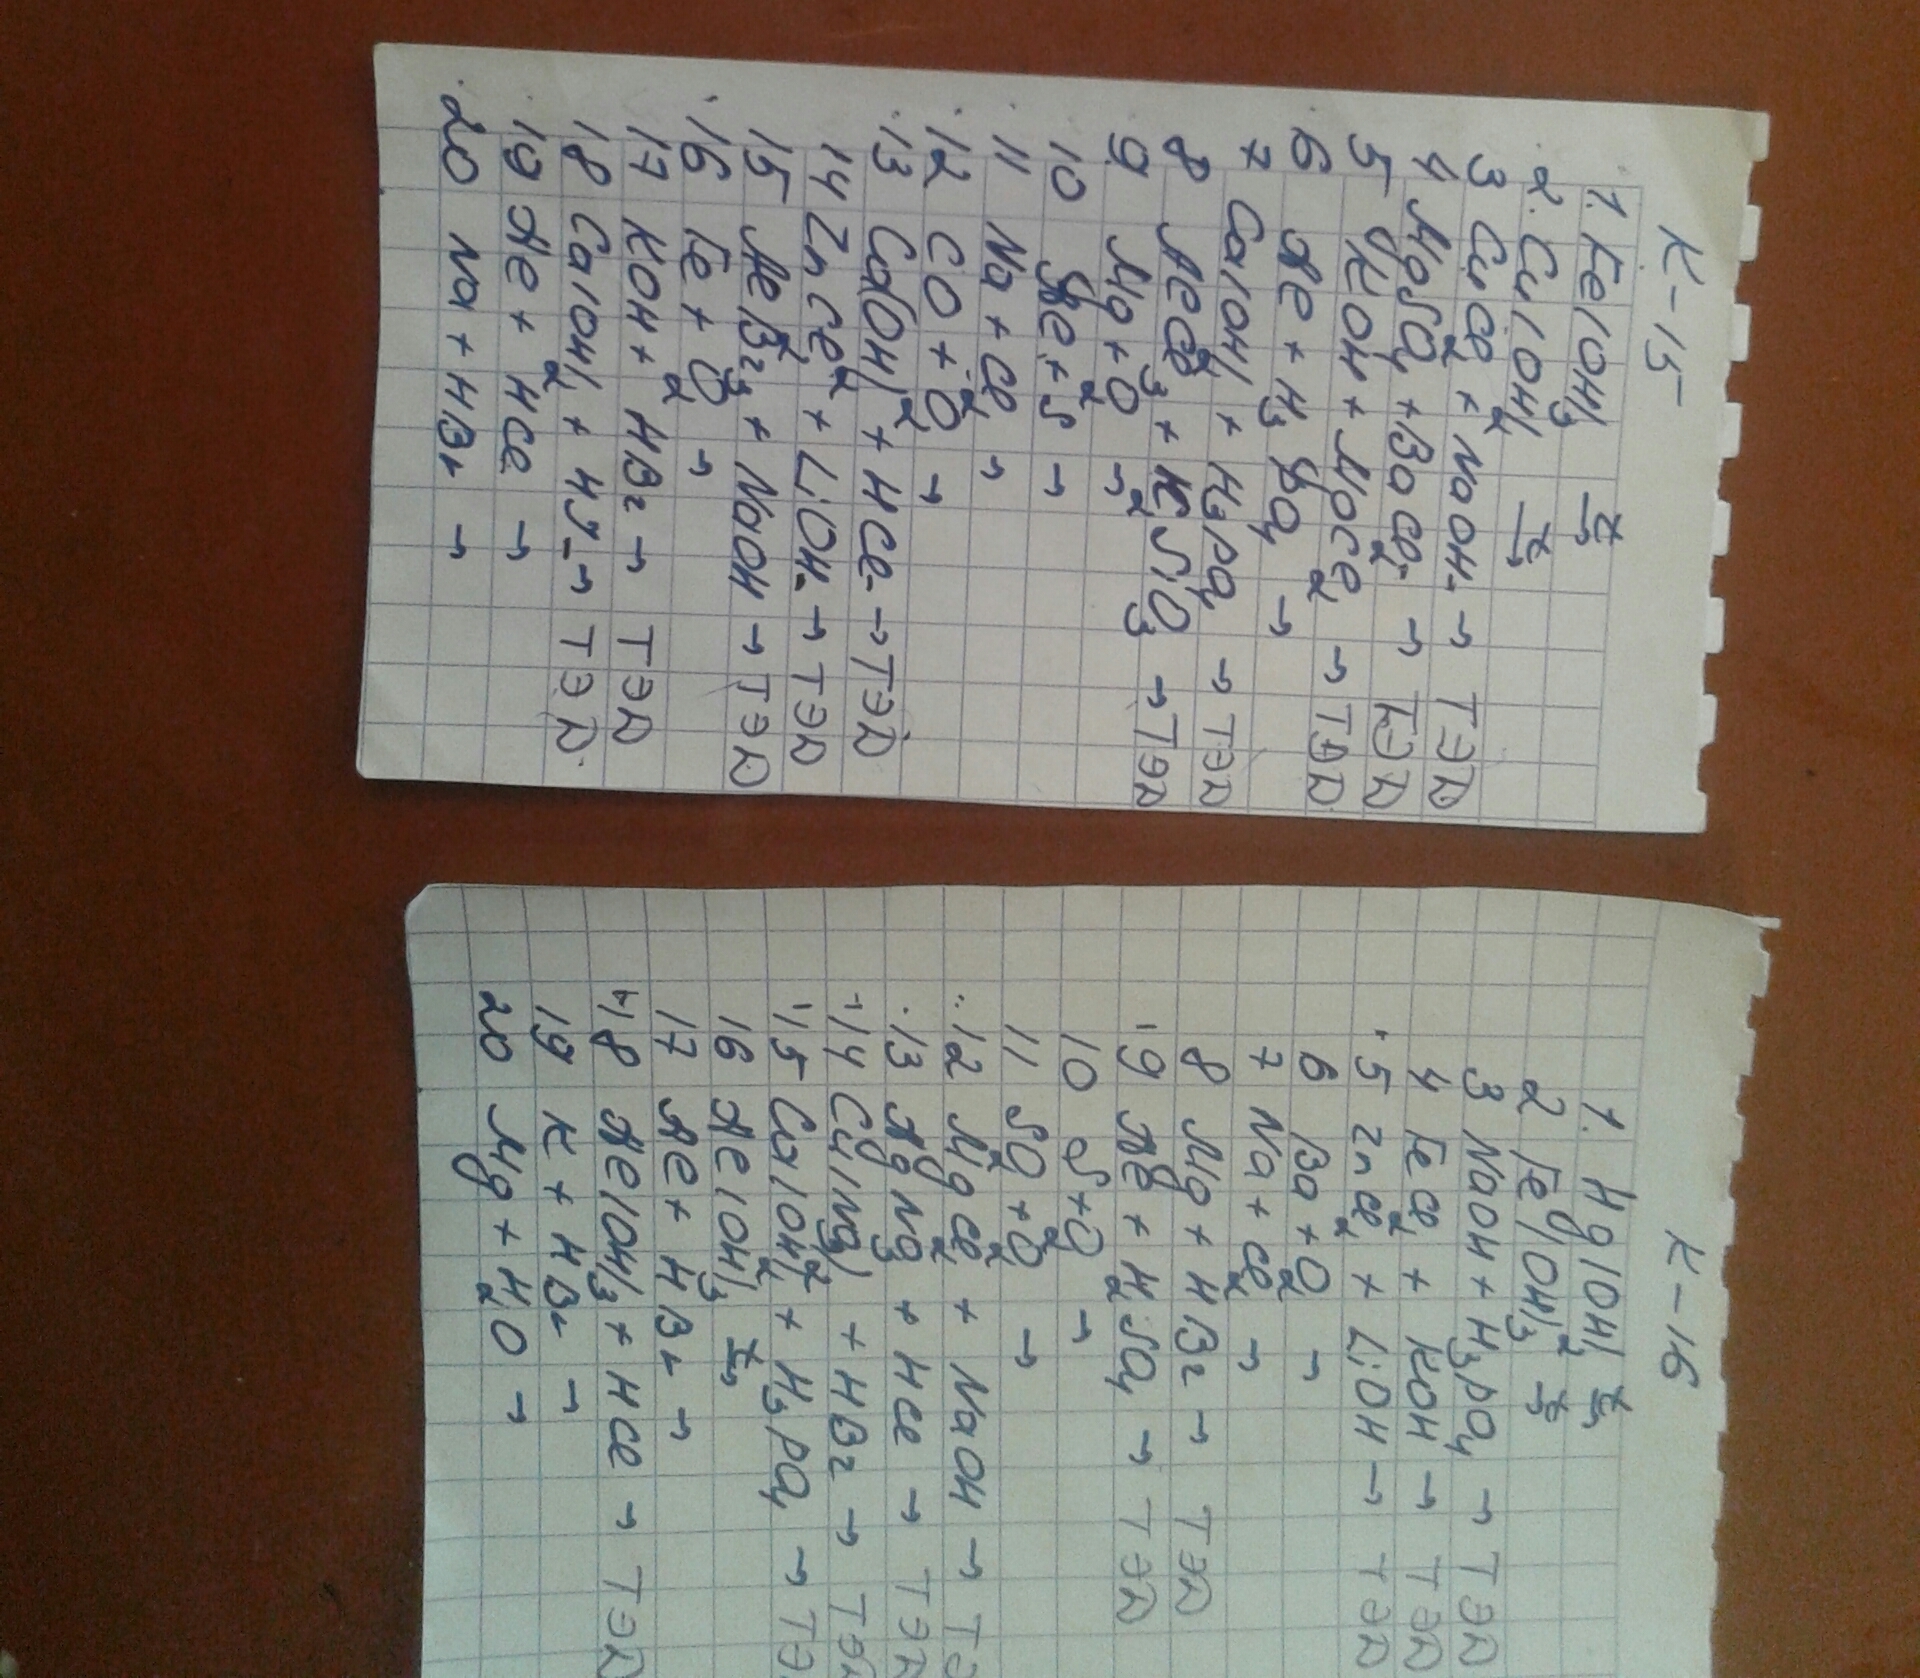 К-15
1. Fe(OH)3 t→
2. Cu(OH)2 t→
3 CuCl2 + NaOH → ТЭД
4 MgSO4 + BaCl2 → ТЭД
5 KOH + MgCl2 → ТЭД
6 Al + H3PO4 →
7 Ca(OH)2 + H3PO4 → ТЭД
8 AlCl3 + K2SiO3 → ТЭД
9 Mg + O2 →
10 Al + S →
11 Na + Cl2 →
12 CO + O2 →
13 Ca(OH)2 + HCl → ТЭД
14 ZnCl2 + LiOH → ТЭД
15 AlBr3 + NaOH → ТЭД
16 Fe + O2 →
17 KOH + HBr → ТЭД
18 Ca(OH)2 + HJ → ТЭД
19 Al + HCl →
20 Na + HBr →
К-16
1. Hg(OH)2 t→
2 Fe(OH)3 t→
3 NaOH + H3PO4 → ТЭД
4 FeCl2 + KOH → ТЭД
5 ZnCl2 + LiOH → ТЭД
6 Ba + O2 →
7 Na + Cl2 →
8 Mg + HBr → ТЭД
9 Al + H2SO4 → ТЭД
10 S + O2 →
11 SO2 + O2 →
12 MgCl2 + NaOH → ТЭ
13 AgNO3 + HCl → ТЭД
14 Cu(NO3)2 + HBr → ТЭД
15 Ca(OH)2 + H3PO4 → ТЭ
16 Al(OH)3 t→
17 Al + HBr →
18 Al(OH)3 + HCl → ТЭД
19 K + HBr →
20 Mg + H2O →